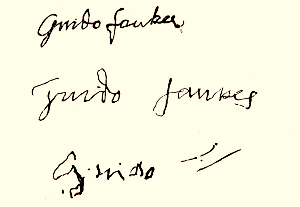 Guido faukes
Guido faukes
Guido